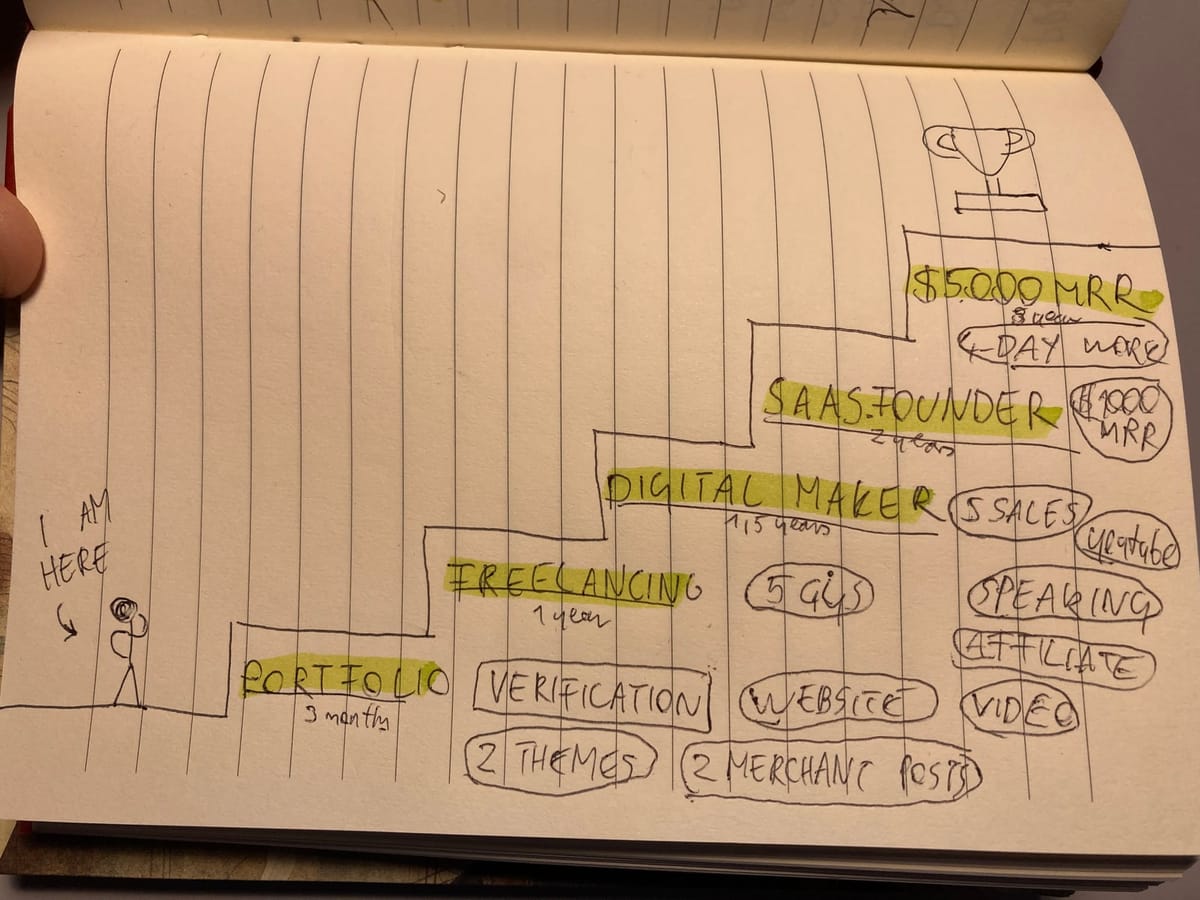 $5.000 MRR
3 years
4-DAY WORK
SAAS FOUNDER
2 years
$1000
MRR
DIGITAL MAKER
1,5 years
5 SALES
youtube
I AM
HERE
FREELANCING
1 year
5 GIGS
SPEAKING
AFFILIATE
PORTFOLIO
3 months
VERIFICATION
WEBSITE
VIDEO
2 THEMES
2 MERCHANT POSTS